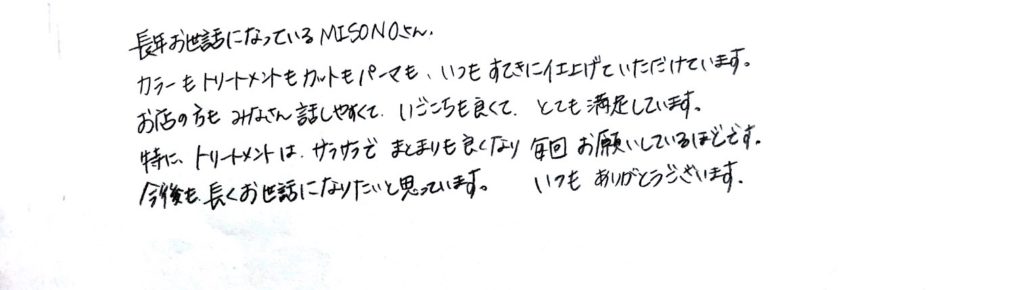 長年お世話になっているMISONOさん.
カラーもトリートメントもカットもパーマも、いつもすてきに仕上げていただけています。
お店の方もみなさん話しやすくて、いごこちも良くて、とても満足しています。
特に、トリートメントは、サラサラでまとまりも良くなり毎回お願いしているほどです。
今後も、長くお世話になりたいと思っています。 いつもありがとうございます.